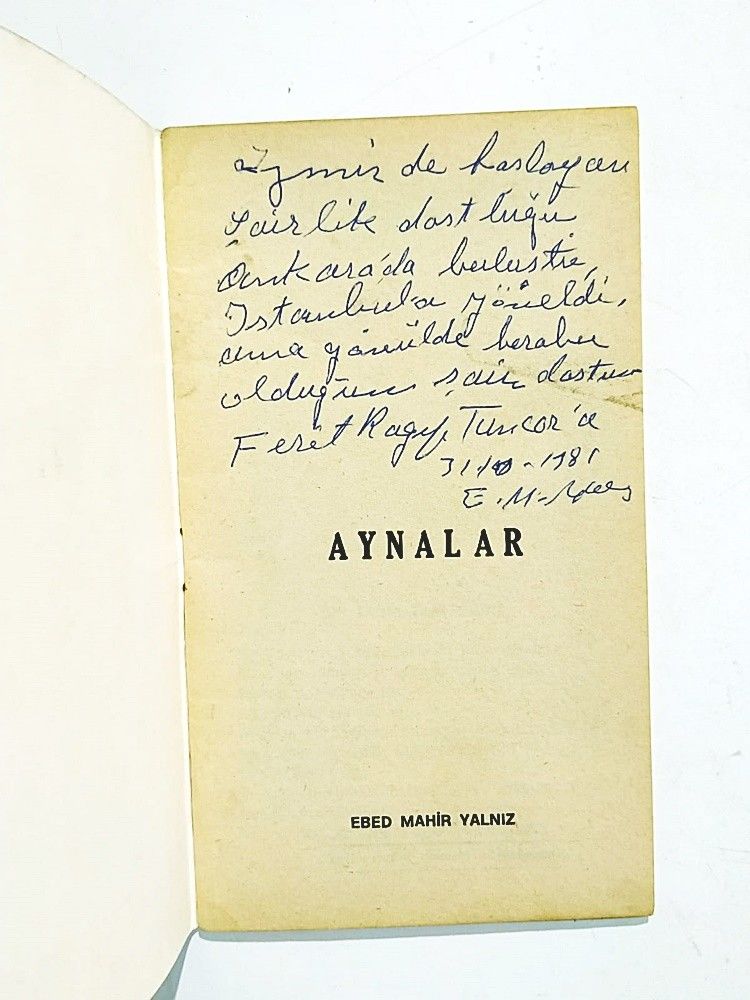 İzmir de başlayan
Şairlik dostluğu
Ankara'da buluştu,
İstanbul'a yöneldi,
ama gönülde beraber
olduğum şair dostum
Ferit Ragıp Tuncor'a
1981
E. M.
AYNALAR
EBED MAHİR YALNIZ